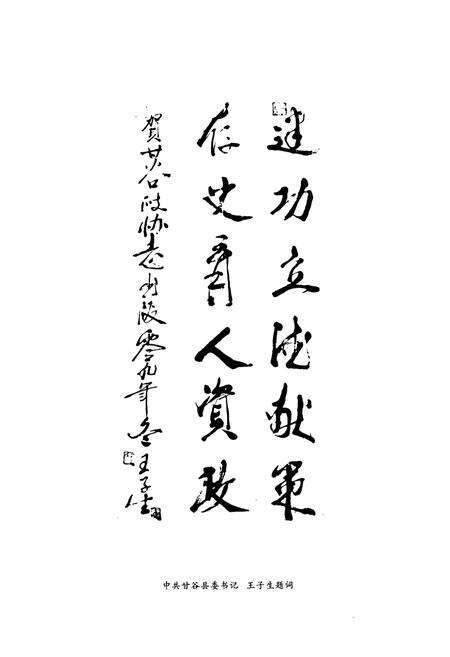 建功立德献策
存史育人资政
贺甘谷政协志出版零九年冬王子生
中共甘谷县委书记 王子生题词